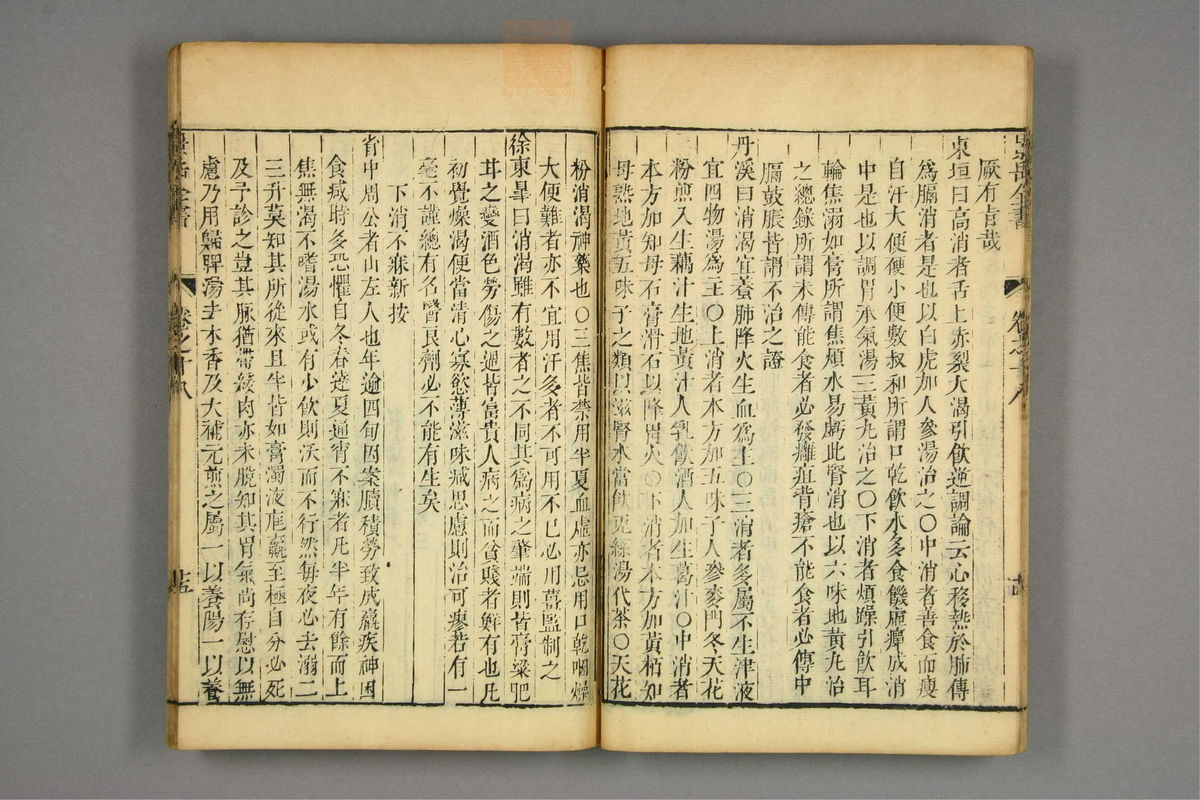 厥有旨哉
東垣曰高消者舌上赤裂大渴引飲逆調論云心移熱於肺傳
爲膈消者是也以白虎加人參湯治之○中消者善食而瘦
自汗大便硬小便數叔和所謂口乾飲水多食饑虛癉成消
中是也以調胃承氣湯三黃丸治之○下消者煩躁引飲耳
輪焦溺如膏所謂焦煩水易虧此腎消也以六味地黃丸治
之總錄所謂末傳能食者必發癰疽背瘡不能食者必傳中
膈鼓脹皆謂不治之證
丹溪曰消渴宜養肺降火生血爲主○三消者多屬不生津液
宜四物湯爲主○上消者本方加五味子人參麥門冬天花
粉煎入生藕汁生地黃汁人乳飲酒人加生葛汁○中消者
本方加知母石膏滑石以降胃火○下消者本方加黃栢知
母熟地黃五味子之類以滋腎水當飲繅絲湯代茶○天花
粉消渴神藥也○三焦皆禁用半夏血虛亦忌用口乾咽燥
大便難者亦不宜用汗多者不可用不已必用薑監制之
徐東臯曰消渴雖有數者之不同其爲病之肇端則皆膏粱肥
耳之變酒色勞傷之過皆富貴人病之而貧賤者鮮有也凡
初覺燥渴便當清心寡慾薄滋味減思慮則治可瘳若有一
毫不謹縱有名醫良劑必不能有生矣
下消不寐新按
省中周公者山左人也年逾四旬因案牘積勞致成羸疾神困
食減時多恐懼自冬春達夏通宵不寐者凡半年有餘而上
焦無渴不嗜湯水或有少飲則沃而不行然每夜必去溺二
三升莫知其所從來且半皆如膏濁液尫羸至極自分必死
及予診之豈其脉猶帶緩肉亦未脫知其胃氣尚存慰以無
慮乃用歸脾湯去木香及大補元煎之屬一以養陽一以養
景岳全書
卷之十八
景岳全書
卷之十八